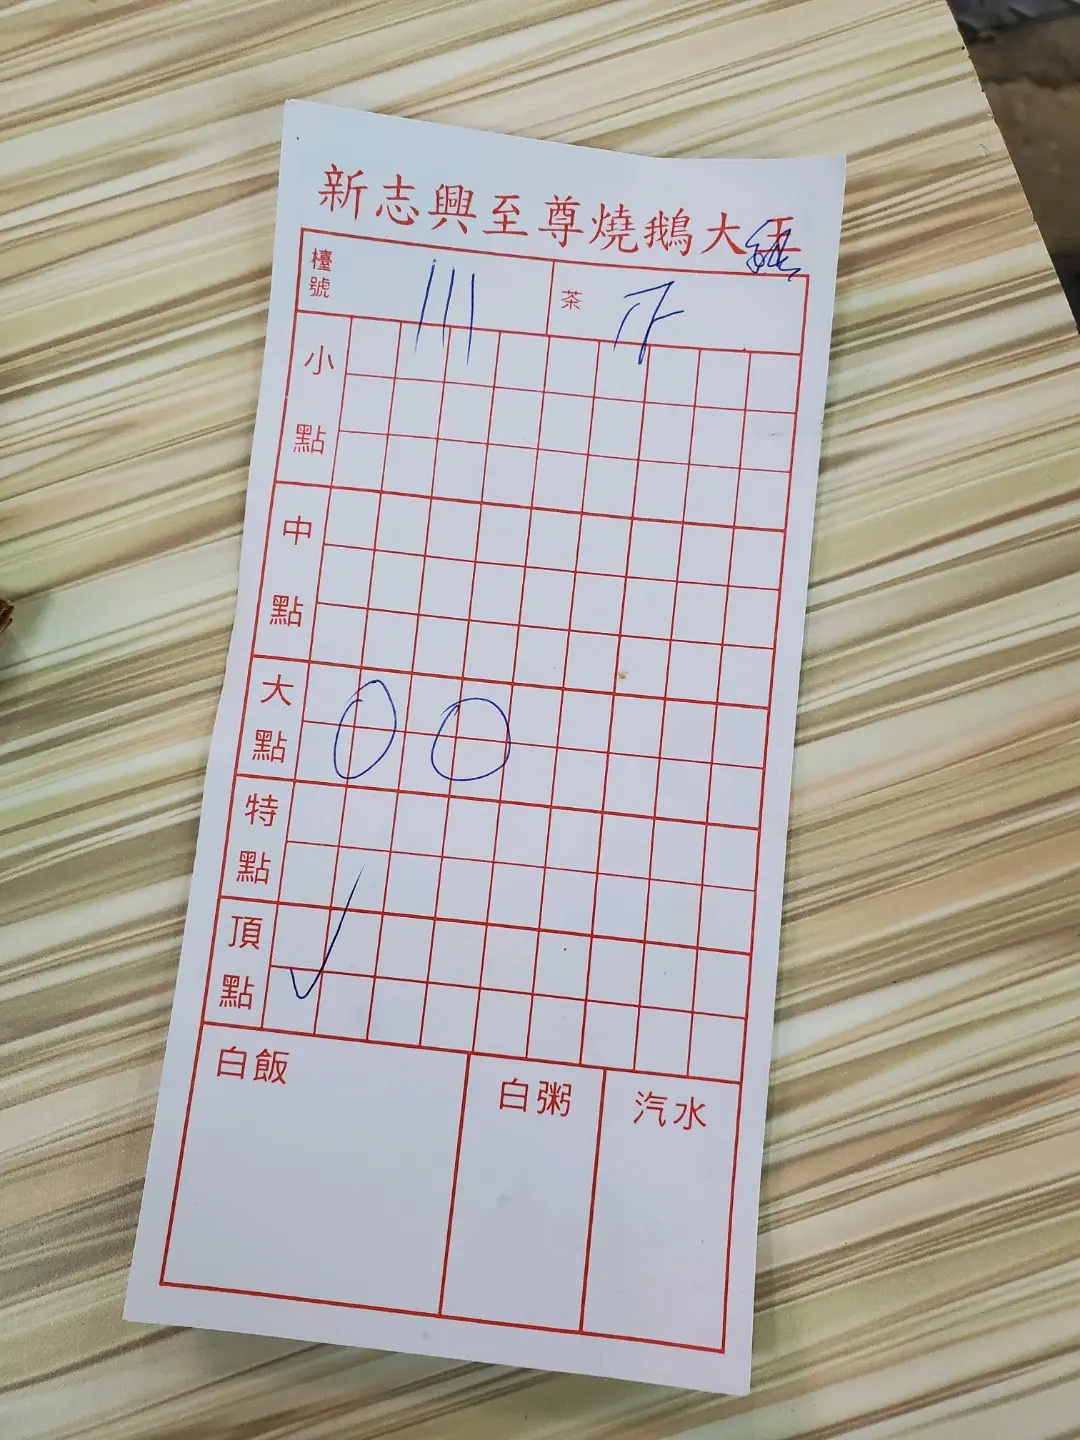 新志興至尊燒鵝大王
檯號 111 茶
小點
中點
大點
特點
頂點
白飯 白粥 汽水